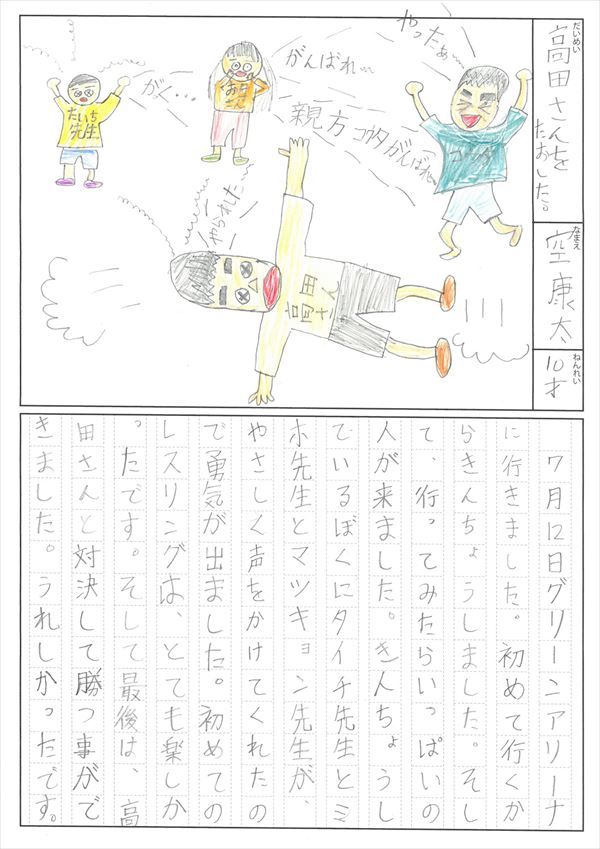 だいめい
高田さんを
たおした。
なまえ
空康太
ねんれい
10才
やったぁ〜
コウタ
がんばれ〜
親方コウタがんばれ〜
たいち
先生
やられた〜
高田さん
7月12日グリーンアリーナ
に行きました。初めて行くか
らきんちょうしました。そし
て、行ってみたらいっぱいの
人が来ました。きんちょうし
ているぼくにタイチ先生とミ
ホ先生とマツキョン先生が、
やさしく声をかけてくれたの
で勇気が出ました。初めての
レスリングは、とても楽しか
ったです。そして最後は、高
田さんと対決して勝つ事がで
きました。うれしかったです。